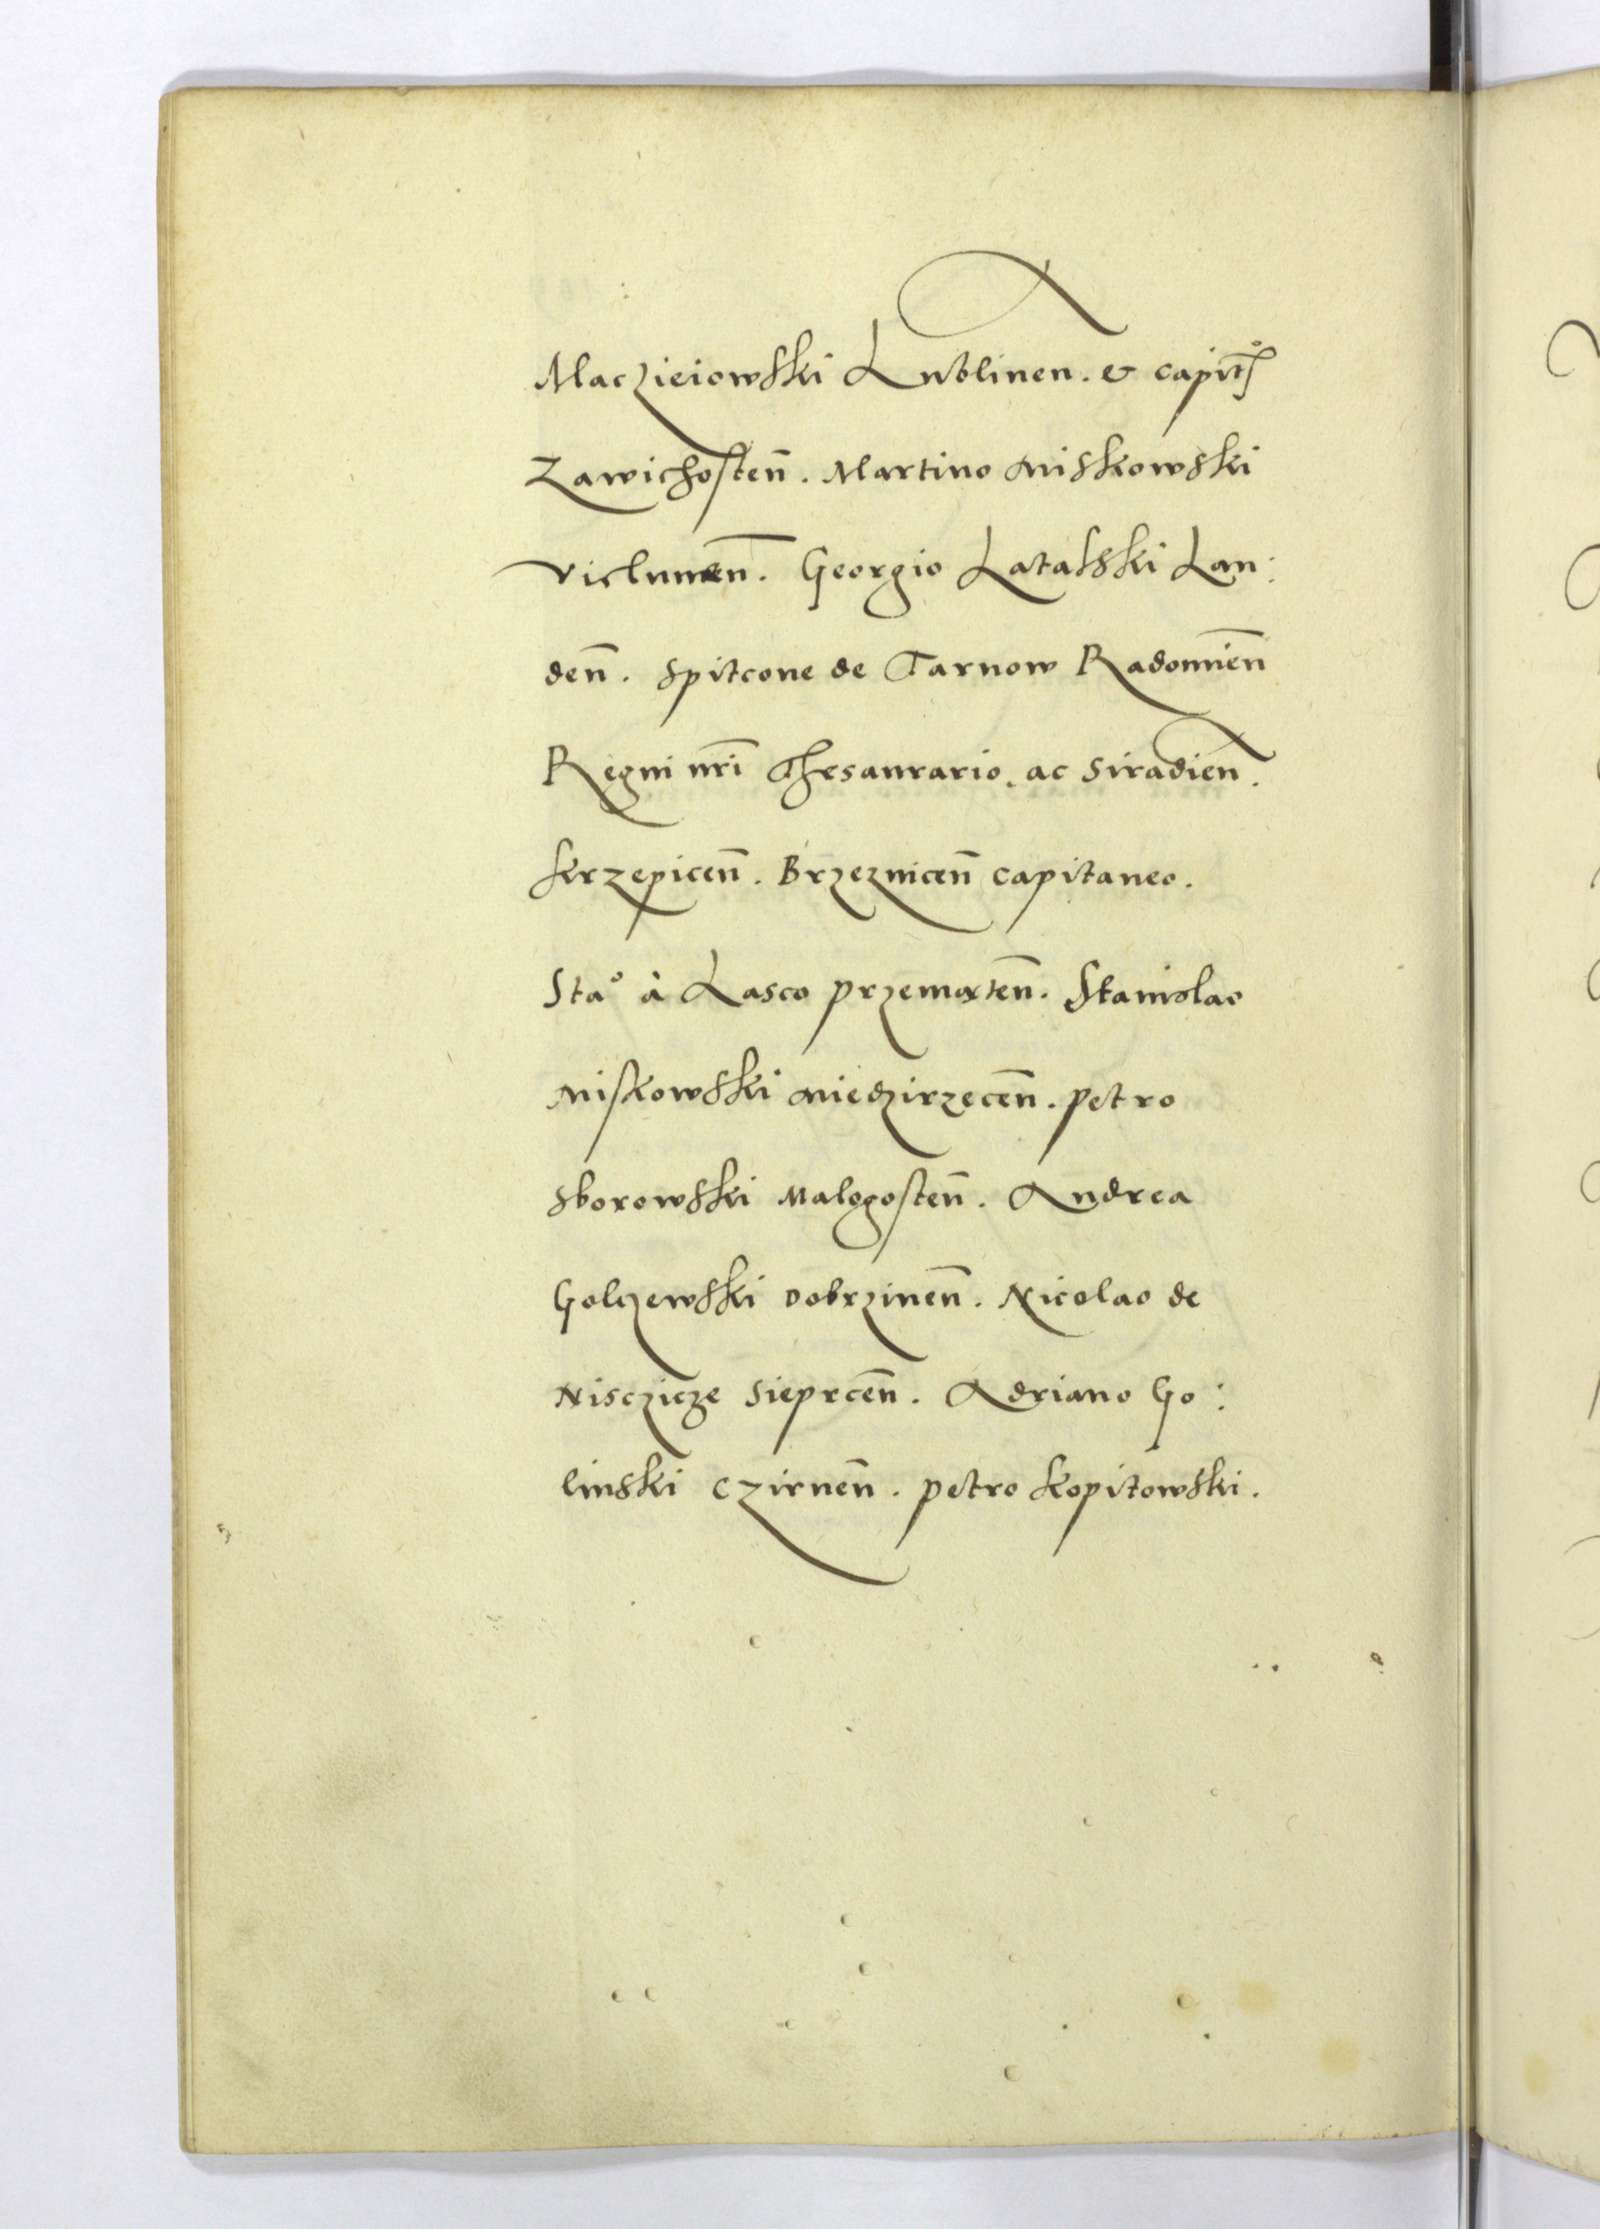 Maczieiowski Lublinen. & capit̊
Zawichosten̄. Martino Miskowski
Vielunen̄. Georgio Latalski Lan:
den̄. Spitcone de Tarnow Radomien̄
Regni nr̄i Thesaurario. ac Siradien̄.
Krzepicen̄. Brzeznicen̄ capitaneo.
Sta° à Lasco Przemeten̄. Stanislao
Miskowski Miedzirzecen̄. Petro
Sborowski Malogosten̄. Andrea
Golczewski Dobrzinen̄. Nicolao de
Nisczicze Sieprcen̄. Adriano Go:
linski Czirnen̄. Petro Kopitowski.